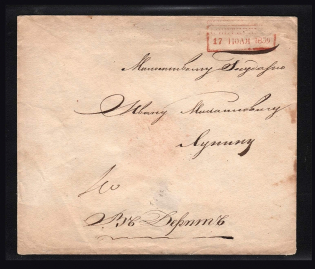 17 ІЮЛЯ 1839
Милостивому Государю
Ивану Михайловичу
Лунину
Въ Дерптѣ